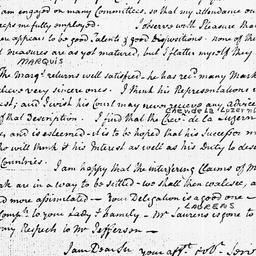 am engaged on many Committees, so that my attendance on
keeps me fully employed. I observe with Pleasure that
appears to be good Talents & good Dispositions. none of the
measures are as yet matured, but I flatter myself they
MARQUIS
The Marqs. returns well satisfied— he has recd. many Mark
very sincere ones. I think his Representations
& I wish his Court may never receive any advice
CHEV. DE LA LUZERNE
of that Description. I find that the Chevr. de la Luzern
and is esteemed— it is to be hoped that his Successor m
who will think it his Interest as well as his Duty to
Countries.
I am happy that the interfering Claims of M
are in a way to be settled— we shall then coalesce, a
more assimilated— Your Delegation is a good one—
LAURENS
Compts. to your Lady & family— Mr Laurens is gone to
my Respects to Mr Jefferson—
I am Dear Sir your afft. & obt. Serv